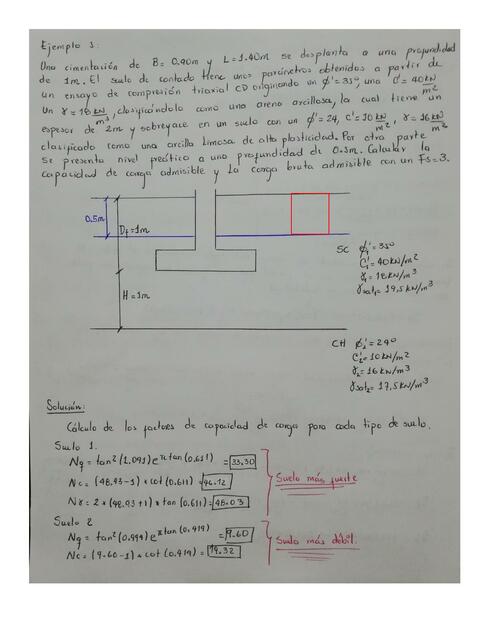 Ejemplo 3:
Una cimentación de B= 0.90m y L=1.40m se desplanta a una profundidad
de 1m. El suelo de contado tiene unos parámetros obtenidos a partir de
un ensayo de compresión triaxial CD originando un φ'=35°, una C'= 40 kN/m²
Un γ = 18 kN/m³, clasificándolo como una arena arcillosa, la cual tiene un
espesor de 2m y sobreyace en un suelo con un φ'=24, C'=10 kN/m², γ=16 kN/m³
clasificado como una arcilla limosa de alta plasticidad. Por otra parte
se presenta nivel freático a una profundidad de 0.5m. Calcular la
capacidad de carga admisible y La carga bruta admisible con un Fs=3.
0.5m
Df=1m
SC φ₁'=35°
C₁'=40kN/m²
γ₁=18kN/m³
γsat₁=19,5kN/m³
H=1m
CH φ₂'=24°
C₂'=10kN/m²
γ₂=16kN/m³
γsat₂=17,5kN/m³
Solución:
Cálculo de los factores de capacidad de carga para cada tipo de suelo.
Suelo 1.
Nq = tan²(1.091) e^π tan(0.611) = 33.30
Nc = (48.93-1) * cot(0.611) = 46.12
Nγ = 2 * (48.93+1) * tan(0.611) = 48.03
Suelo más fuerte
Suelo 2
Nq = tan²(0.994) e^π tan(0.419) = 9.60
Nc = (9.60-1) * cot(0.419) = 19.32
Suelo más débil.